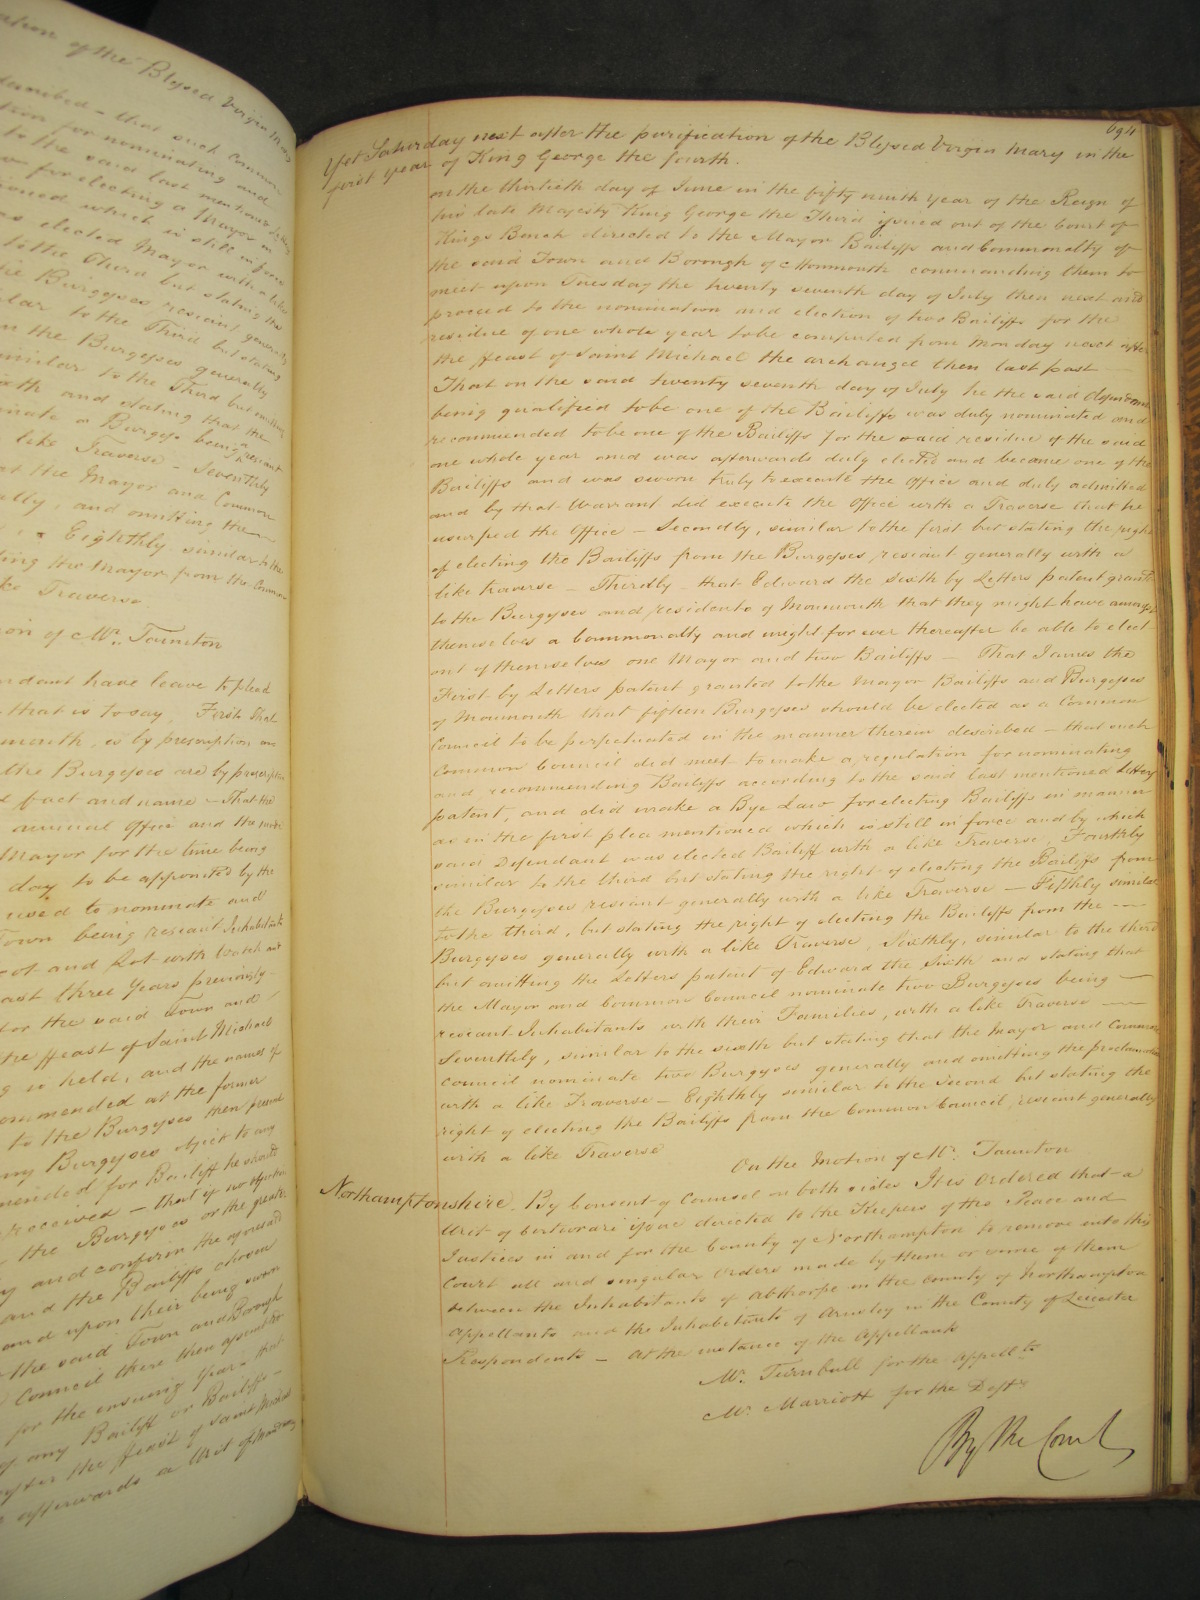 ation of the Blessed Virgin Mary
described - that such Common
tion for nominating and
to the said last mentioned Letters
for electing a Mayor in
tioned which is still in force
as elected Mayor with a like
to the Third but stating the
the Burgesses resiant generally
ilar to the Third but stating
m the Burgesses generally
imilar to the Third but omitting
ixth and stating that the
inate a Burgess being resiant
like Traverse - Seventhly
at the Mayor and Common
ally, and omitting the
Eighthly similar to the
ting the Mayor from the Common
ke Traverse
ion of Mr. Taunton
ndant have leave to plead
that is to say, First that
mouth, is by prescription an
the Burgesses are by prescription
fact and name - That the
annual Office and the
Mayor for the time being
day to be appointed by the
used to nominate and
Town being resiant Inhabitants
cot and Lot with Watch and
ast three Years previously
for the said Town and
the ffeast of Saint Michael
g is held, and the names of
ommended as the former
to the Burgesses then present
ny Burgesses object to any
mended for Bailiff he should
received - that if no objection
the Burgesses or the greater
g and confirm the aforesaid
and the Bailiffs chosen
and upon their being sworn
the said Town and Borough
Council there then assembled
for the ensuing Year - that
of any Bailiff or Bailiffs -
after the feast of Saint Michael
afterwards a Writ of Mandamus
694
Yet Saturday next after the purification of the Blessed Virgin Mary in the
first year of King George the fourth.
on the thirtieth day of June in the fifty ninth Year of the Reign of
his late Majesty King George the Third issued out of the Court of
Kings Bench directed to the Mayor Bailiffs and Commonalty of
the said Town and Borough of Monmouth commanding them to
meet upon Tuesday the twenty seventh day of July then next and
proceed to the nomination and election of two Bailiffs for the
residue of one whole year to be computed from Monday next after
the ffeast of Saint Michael the archangel then last past
That on the said twenty seventh day of July he the said Defendant
being qualified to be one of the Bailiffs was duly nominated and
recommended to be one of the Bailiffs for the said residue of the said
one whole year and was afterwards duly elected and became one of the
Bailiffs and was sworn truly to execute the Office and duly admitted
and by that Warrant did execute the Office with a Traverse that he
usurped the Office - Secondly, similar to the first but stating the right
of electing the Bailiffs from the Burgesses resiant generally with a
like traverse - Thirdly - that Edward the Sixth by Letters patent granted
to the Burgesses and residents of Monmouth that they might have amongst
themselves a Commonalty and might for ever thereafter be able to elect
out of themselves one Mayor and two Bailiffs - That James the
First by Letters patent granted to the Mayor Bailiffs and Burgesses
of Monmouth that fifteen Burgesses should be elected as a Common
Council to be perpetuated in the manner therein described - that such
Common Council did meet to make a regulation for nominating
and recommending Bailiffs according to the said last mentioned Letters
patent, and did make a Bye Law for electing Bailiffs in manner
as in the first plea mentioned which is still in force and by which
said Defendant was elected Bailiff with a like Traverse, Fourthly
similar to the third but stating the right of electing the Bailiffs from
the Burgesses resiant generally with a like Traverse - Fifthly similar
to the third, but stating the right of electing the Bailiffs from the
Burgesses generally with a like Traverse, Sixthly, similar to the third
but omitting the Letters patent of Edward the Sixth and stating that
the Mayor and Common Council nominate two Burgesses being
resiant Inhabitants with their Families, with a like Traverse
Seventhly, similar to the sixth but stating that the Mayor and Common
Council nominate two Burgesses generally and omitting the proclamation
with a like Traverse - Eighthly similar to the second but stating the
right of electing the Bailiffs from the Common Council, resiant generally
with a like Traverse
On the Motion of Mr. Taunton
Northamptonshire. By Consent of Counsel on both sides It is Ordered that a
Writ of Certiorari issue directed to the Keepers of the Peace and
Justices in and for the County of Northampton to remove into this
Court all and singular Orders made by them or some of them
between the Inhabitants of Abthorpe in the County of Northampton
Appellants and the Inhabitants of Arnsley in the County of Leicester
Respondents - At the instance of the Appellants
Mr. Turnbull for the Appellts
Mr. Marriott for the Defts
By the Court